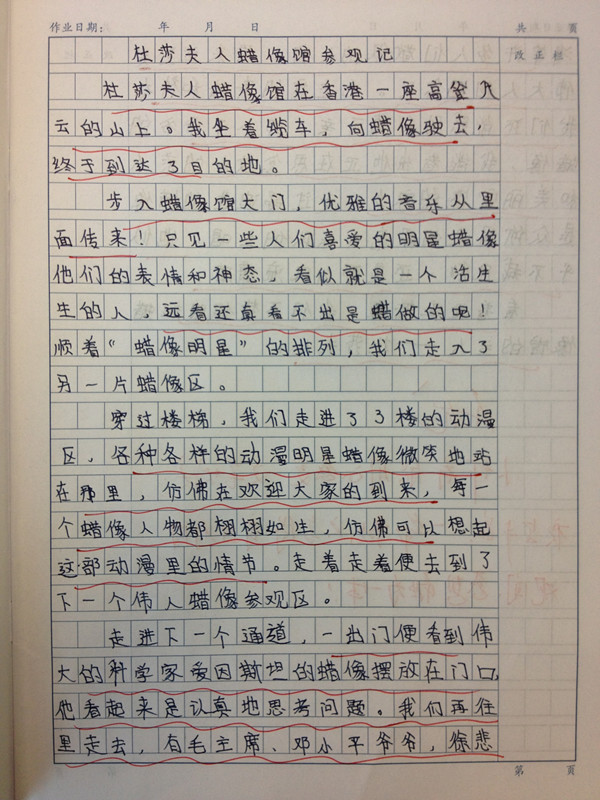 作业日期: 年 月 日 共 页
杜莎夫人蜡像馆参观记 改正栏
杜莎夫人蜡像馆在香港一座高耸入
云的山上。我坐着缆车,向蜡像驶去,
终于到达了目的地。
步入蜡像馆大门,优雅的音乐从里
面传来!只见一些人们喜爱的明星蜡像
他们的表情和神态,看似就是一个活生
生的人,远看还真看不出是蜡做的呢!
顺着“蜡像明星”的排列,我们走入了
另一片蜡像区。
穿过楼梯,我们走进了3楼的动漫
区,各种各样的动漫明星蜡像微笑地站
在那里,仿佛在欢迎大家的到来,每一
个蜡像人物都栩栩如生,仿佛可以想起
这部动漫里的情节。走着走着便去到了
下一个伟人蜡像参观区。
走进下一个通道,一出门便看到伟
大的科学家爱因斯坦的蜡像摆放在门口,
他看起来是认真地思考问题。我们再往
里走去,有毛主席、邓小平爷爷,徐悲
第 页